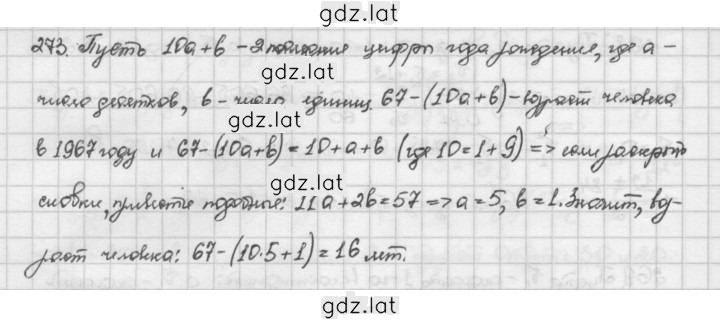 gdz.lat
273. Пусть 10a+b - 2 последние цифры года рождения, где a -
gdz.lat
число десятков, b - число единиц. 67-(10a+b) - возраст человека
gdz.lat
в 1967 году и 67-(10a+b)=10+a+b (где 10=1+9) => если раскрыть
gdz.lat
скобки, привести подобные: 11a+2b=57 => a=5, b=1. Значит, воз-
gdz.lat
раст человека: 67-(10·5+1)=16 лет.
gdz.lat